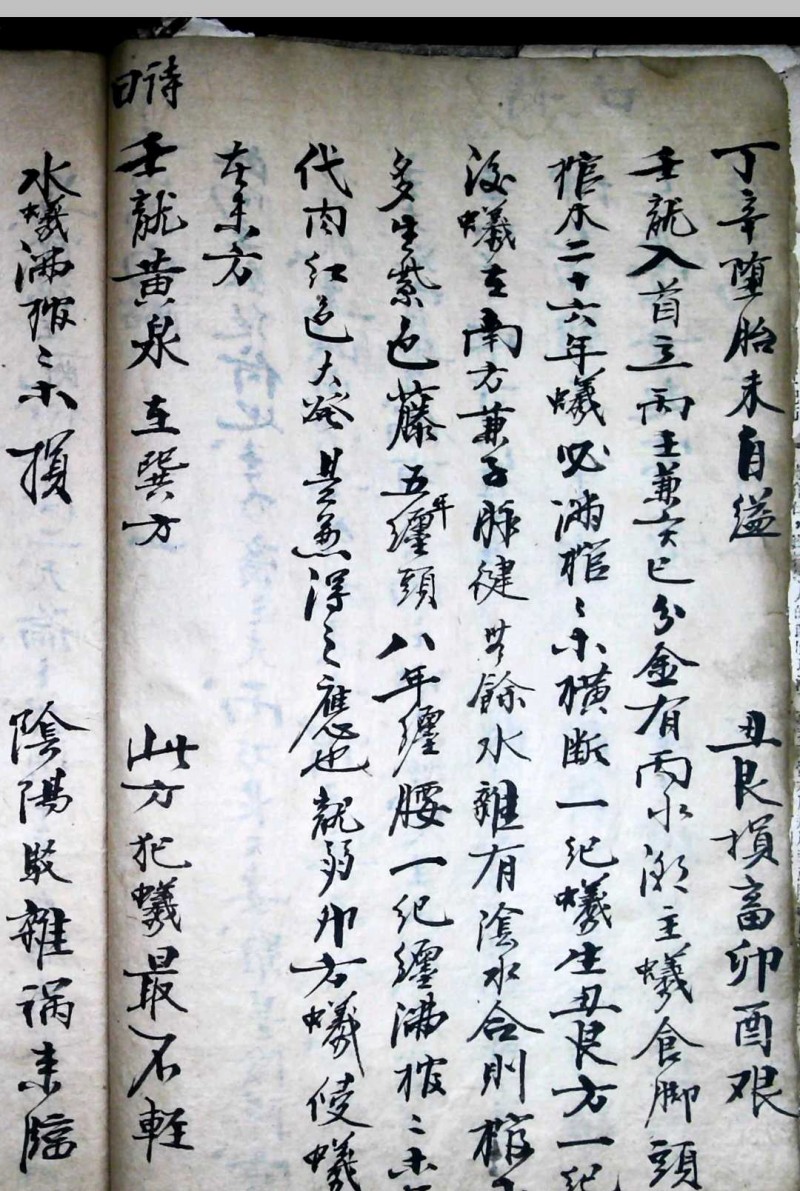 丁辛墮胎未自縊 丑艮損畜卯酉艰
壬龍入首立丙壬兼亥巳分金有丙水潮主蟻食脚頭
棺木二十六年蟻必满棺〻木横断一纪蟻生丑艮方一纪
後蟻在南方兼子脉健其餘水雜有陰水合則棺
多生紫色藤五年纏頭八年纏腰一纪纏满棺〻木
代肉红色大發是兼得之應也龍弱卯方蟻侵蟻
在未方
詩曰
壬龍黄泉在巽方 此方犯蟻最不輕
水蟻满棺〻木損 陰陽駁雜祸来臨